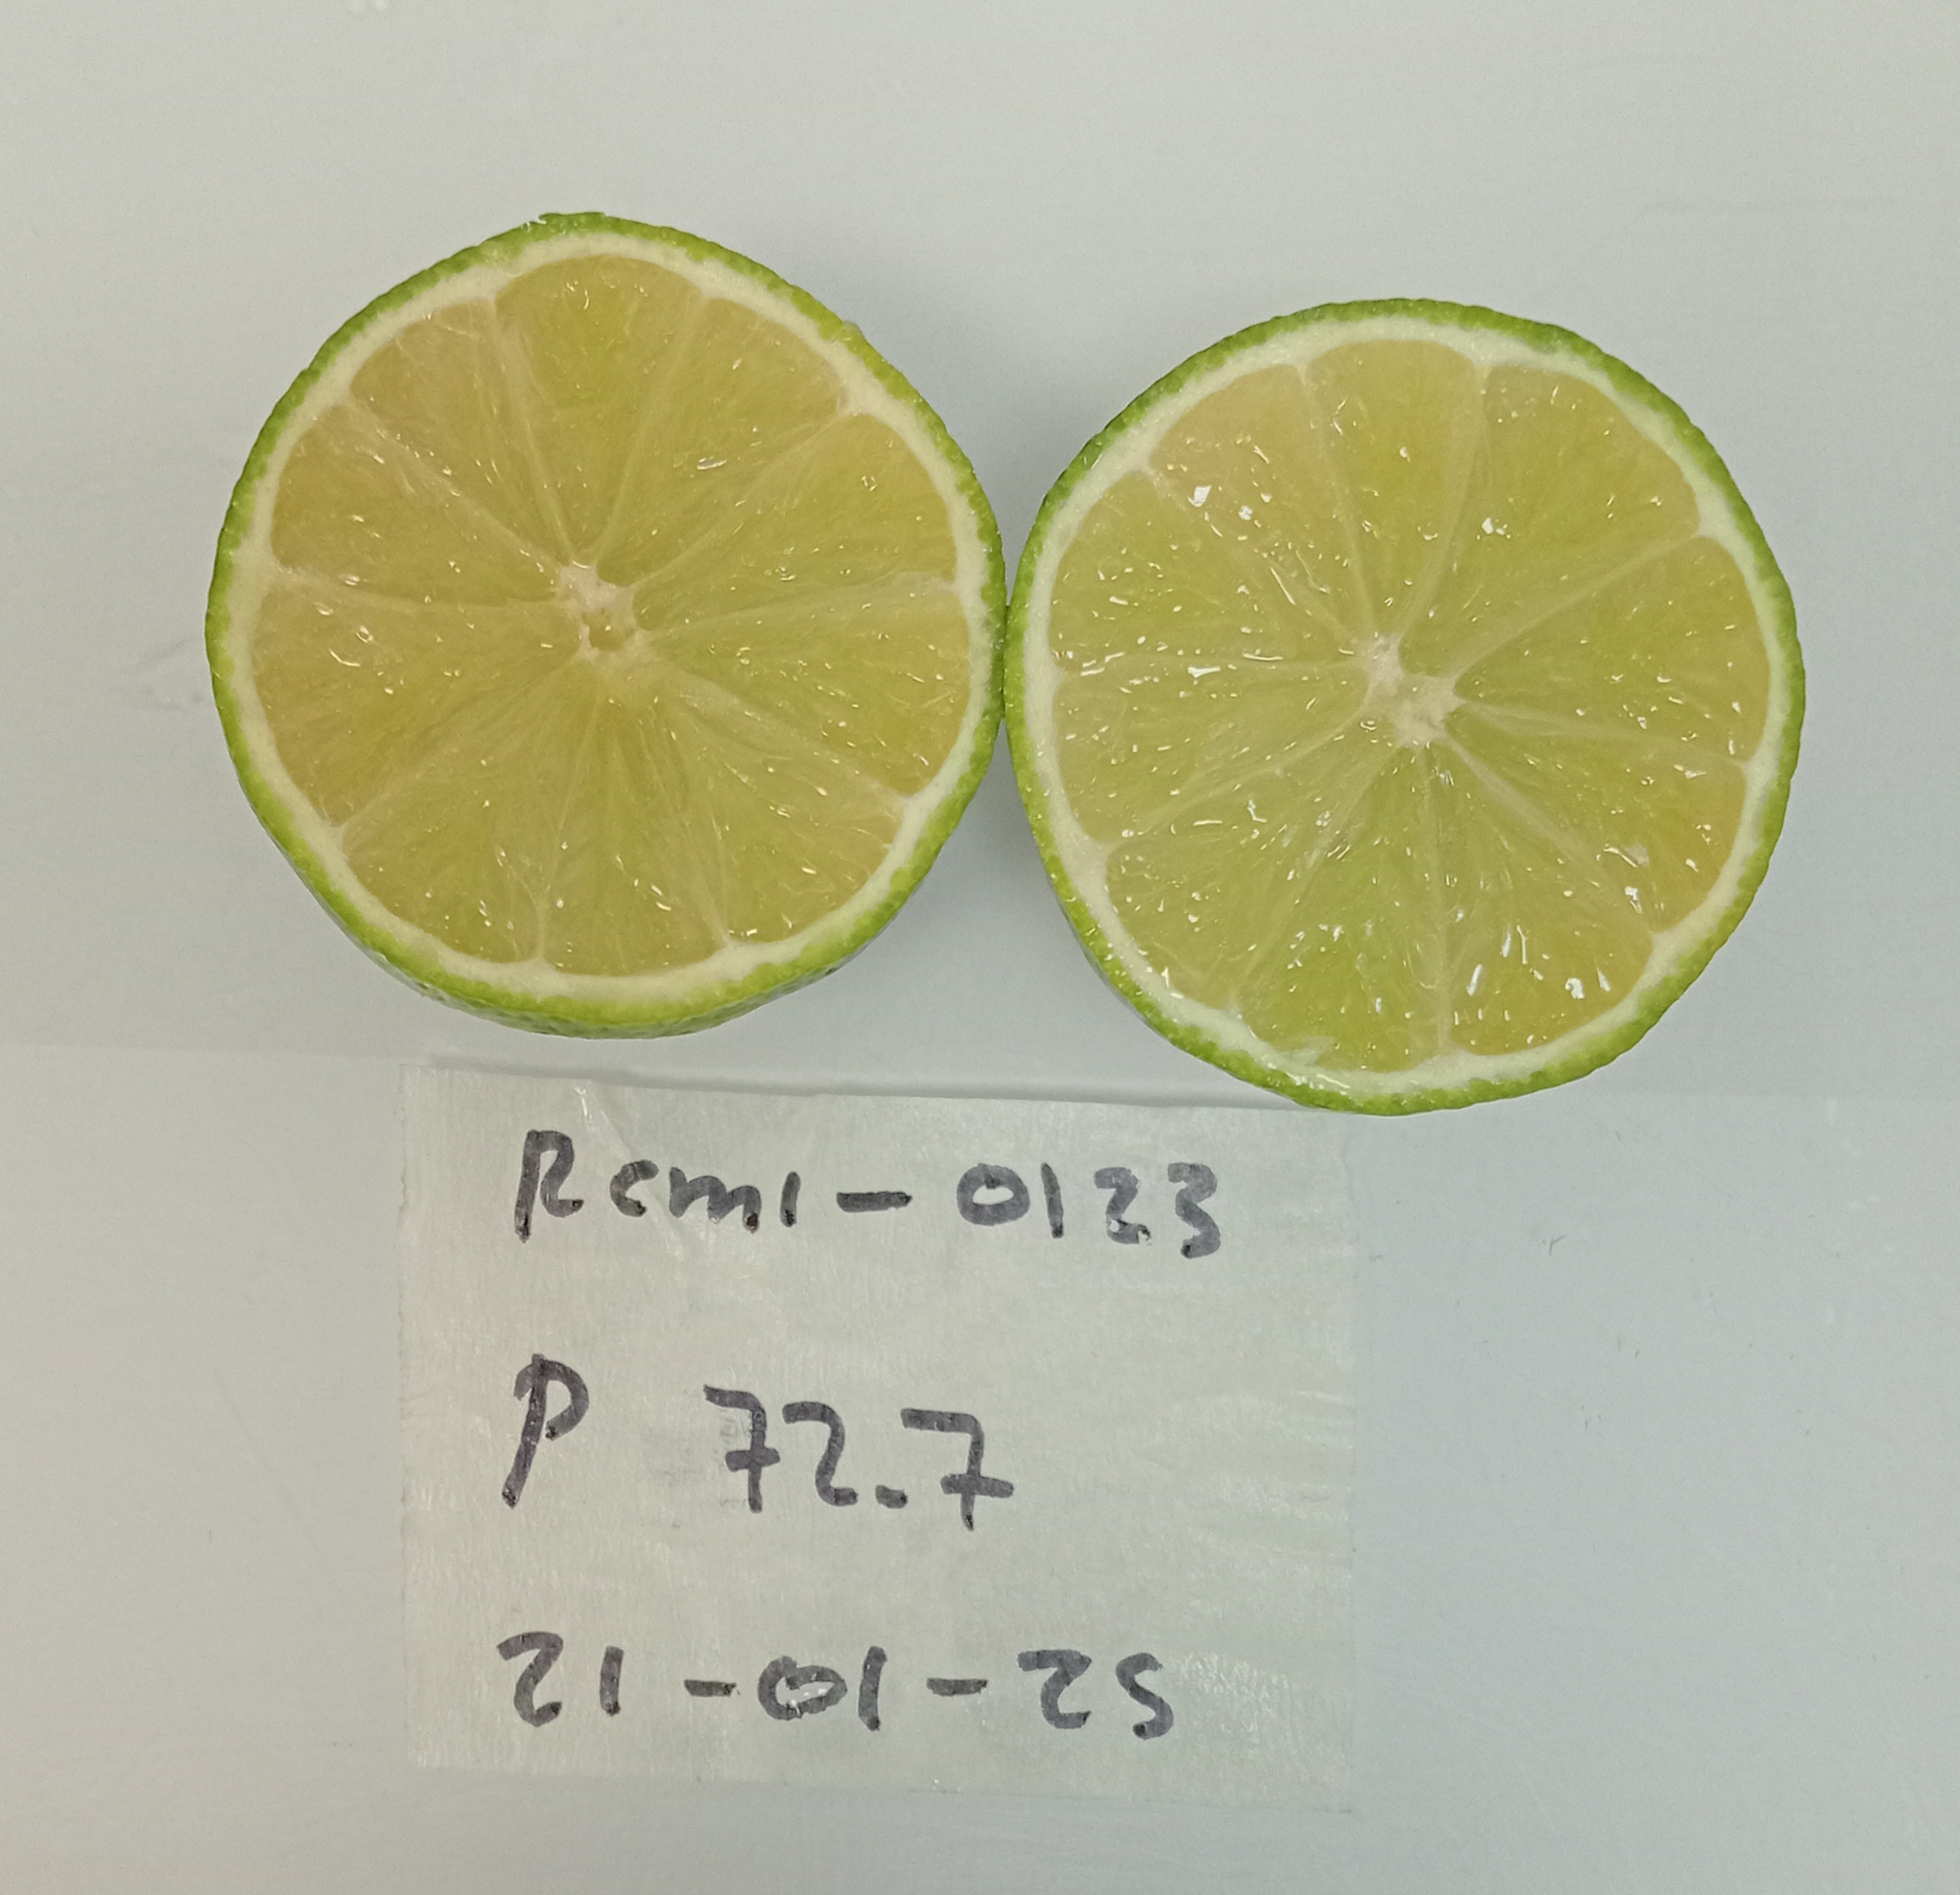 Rcm1-0123
P 72.7
21-01-25